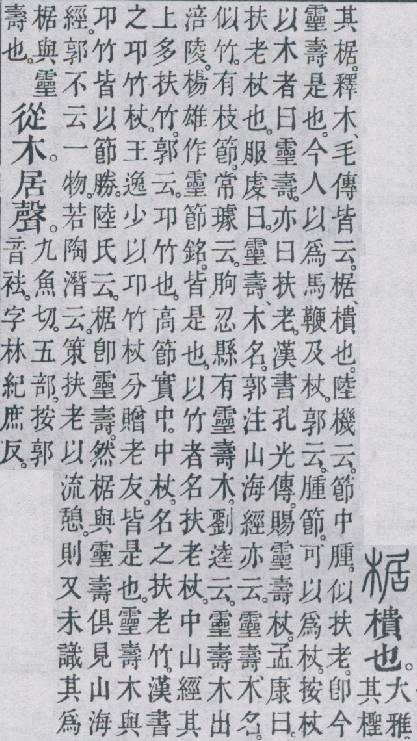 椐樻也。大雅
其檉
其椐。釋木、毛傳皆云。椐、樻也。陸機云。節中腫。似扶老。卽今
靈壽是也。今人以爲馬鞭及杖。郭云。腫節。可以爲杖。按杖
以木者曰靈壽。亦曰扶老。漢書孔光傳。賜靈壽杖。孟康曰。
扶老杖也。服虔曰。靈壽、木名。郭注山海經亦云。靈壽、木名。
似竹。有枝節。常璩云。朐忍縣有靈壽木。劉逵云。靈壽木出
涪陵。楊雄作靈節銘。皆是也。以竹者名扶老杖。中山經其
上多扶竹。郭云。邛竹也。高節實中。中杖。名之扶老竹。漢書
之邛竹杖。王逸少以邛竹杖分贈老友皆是也。靈壽木與
邛竹皆以節勝。陸氏云。椐卽靈壽。然椐與靈壽俱見山海
經。郭不云一物。若陶潛云。策扶老以流憩。則又未識其爲
椐與靈
壽也。
從木。居聲。
九魚切。五部。按郭
音祛。字林紀庶反。